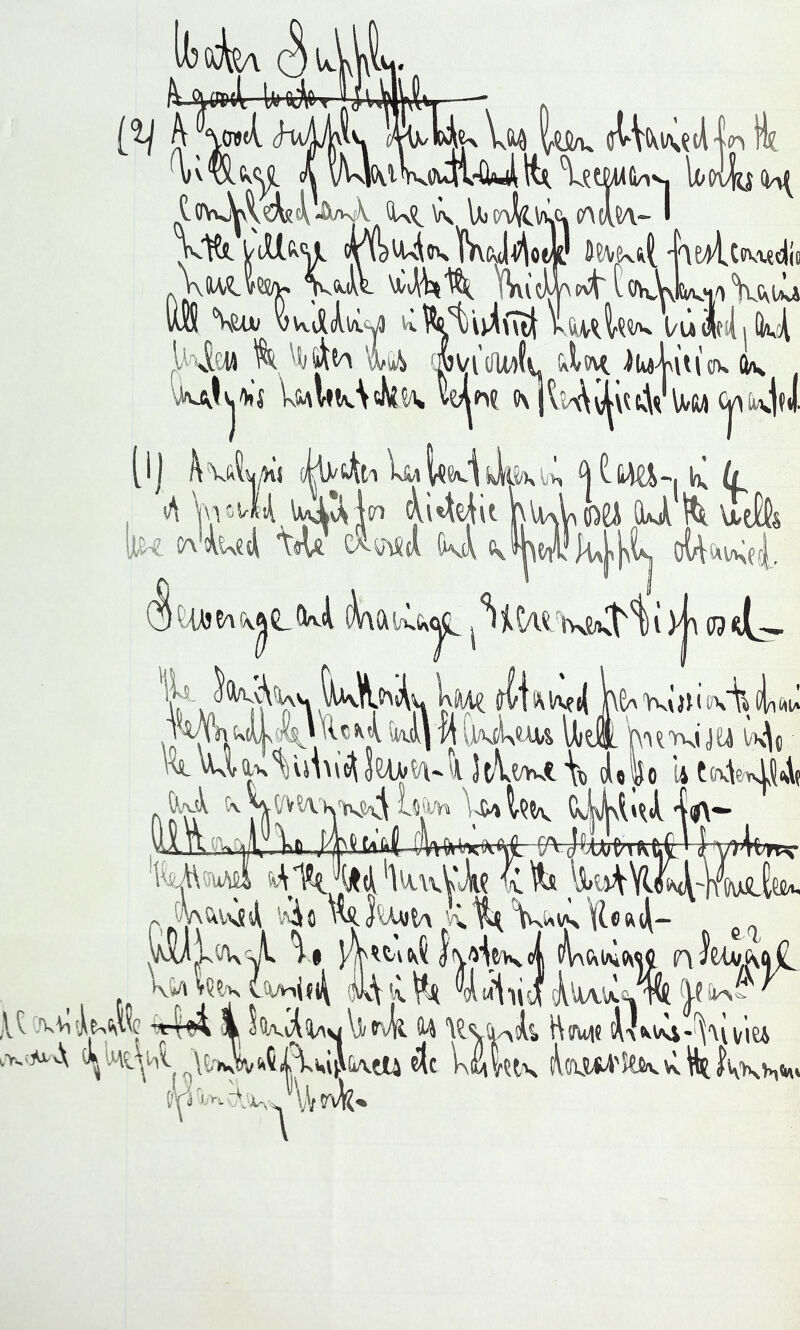 Water Supply.
A good water supply
(2) A good supply of water has been obtained for the
Village of Charmouth and the necessary works are
completed and are in working order-
In the village of Burton Bradstock several fresh connectio
have been made with the Bridport Companys mains
All new buildings in the District have been visited, and
unless the water was obviously above suspicion an
analysis has been taken before a Certificate was granted.
(1) Analysis of water has been taken in 9 Cases-, in 4
it proved unfit for dietetic purposes and the wells
were ordered to be closed and a fresh supply obtained.
Sewerage and drainage, Excrement Disposal-
The Sanitary Authority have obtained permission to drain
the Bradpole Road and St Andrews Well premises into
the Urban District Sewer- A Scheme to do so is contemplate
and a Government Loan has been applied for-
Although no special drainage or sewerage System
The Houses at the Old Turnpike in the West Road have been
drained into the Sewer in the Main Road-
Although no special System of drainage or Sewage er
has been carried out in the district during the year
A Considerable a lot of Sanitary Work as regards House drains- Privies
amount of useful removal of nuisances etc has been done as seen in the Summary
of Sanitary Work-